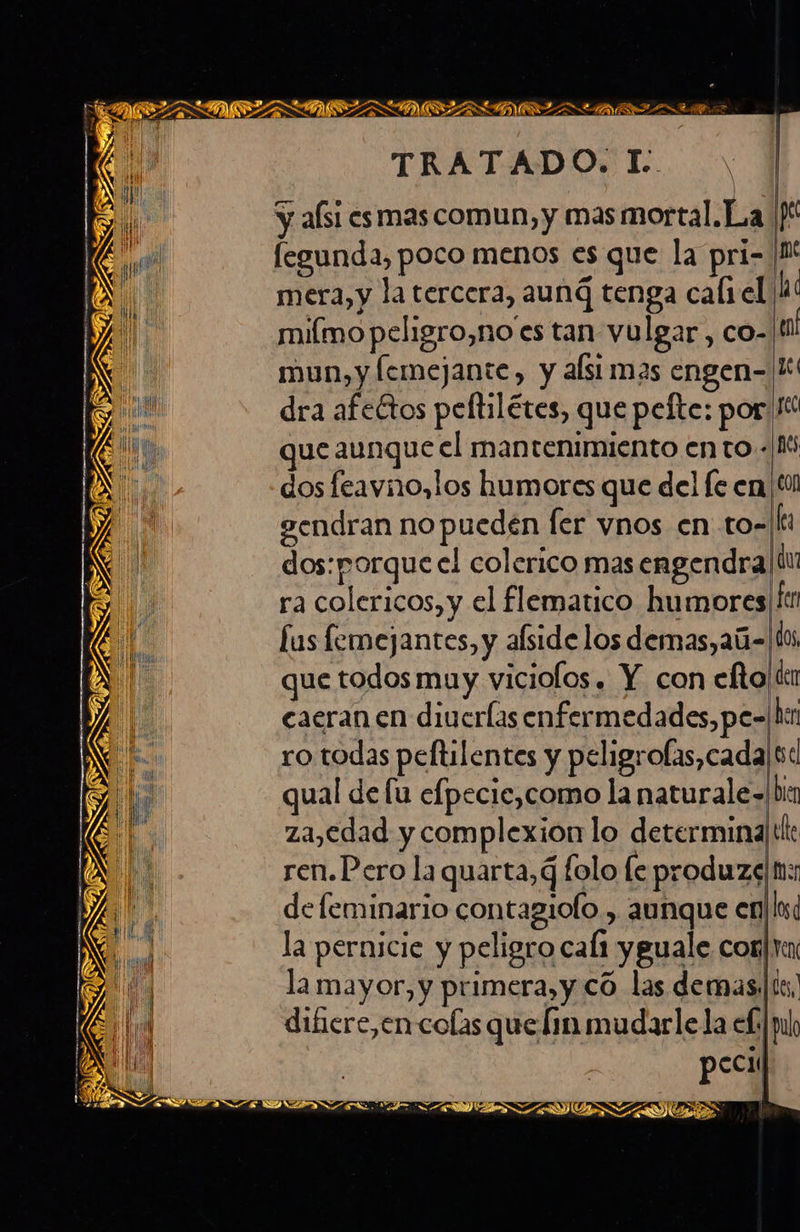 TRATADO. I.
y aſsi es mas comun, y mas mortal. La
ſegunda, poco menos es que la pri-
mera, y la tercera, aunq̃ tenga caſi el
miſmo peligro, no es tan vulgar, co-
mun, y ſemejante, y aſsi mas engen-
dra afectos peſtilẽtes, que peſte: por
que aunque el mantenimiento en to-
dos ſea vno, los humores que del ſe en
gendran no pueden ſer vnos en to-
dos: porque el colerico mas engendra
ra colericos, y el flematico humores
ſus ſemejantes, y aſside los demas, aũ-
que todos muy vicioſos. Y con eſto
caeran en diuerſas enfermedades, pe-
ro todas peſtilentes y peligroſas, cada
qual de ſu eſpecie, como la naturale-
za, edad y complexion lo determina
ren. Pero la quarta, q̃ ſolo ſe produze
de ſeminario contagioſo, aunque en
la pernicie y peligro caſi yguale con
la mayor, y primera, y cõ las demas
difiere, en coſas que ſin mudarle la eſ
peci